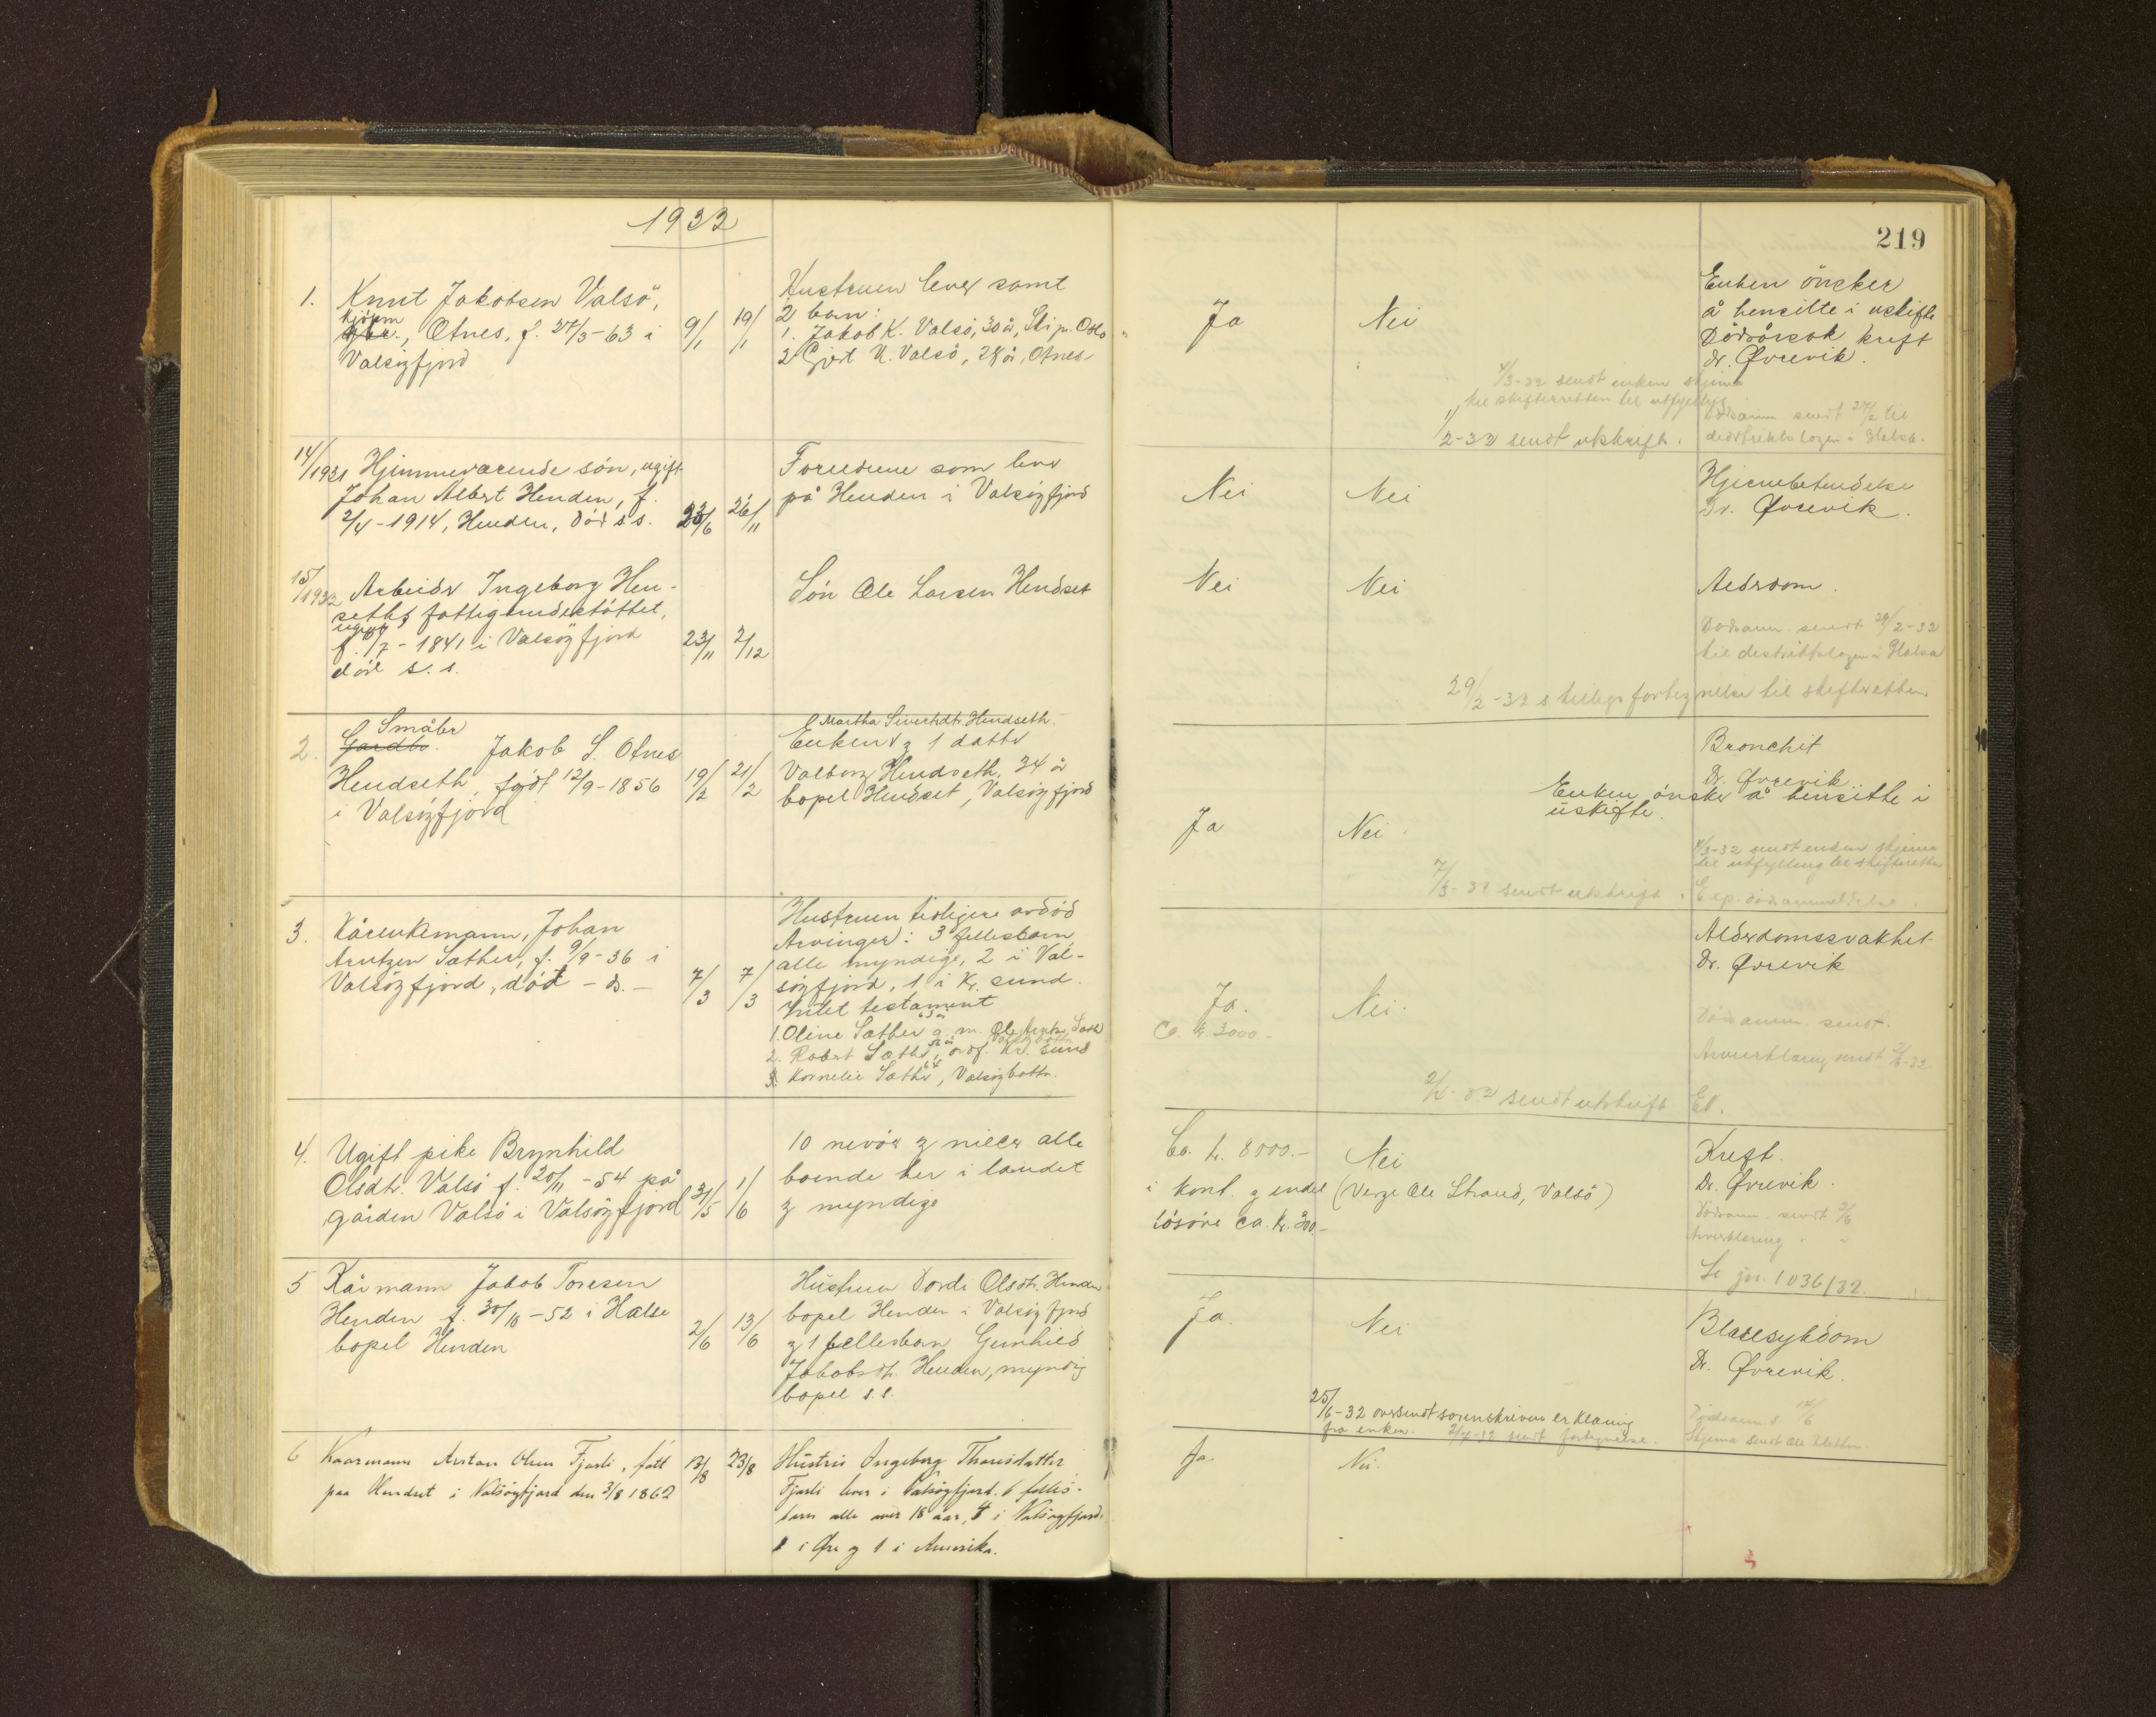 1932
219
1. Knut Jakobsen Valsö,
kjörm
Otnes, f. 27/3-63 i
Valsöyfjord
9/1 19/1
Hustruen lever samt
2 barn:
1. Jakob K. Valsö, 30 år, Ski pr. Oslo
2. Gjert K. Valsö, 28 år, Otnes
Ja
Nei
Enken önsker
å hensitte i uskifte
Dödsårsak kreft
dr. Øvrevik.
4/3-32 sendt enken skjema
til skifteretten til utfylling
1/2-32 sendt utskrift.
Dödsanm sendt 27/2 til
distriktslegen i Halsa.
14/1931 Hjemmeværende sön, ugift
Johan Albert Henden, f.
2/4-1914, Henden, död s.s.
23/6 26/11
Foreldrene som lever
på Henden i Valsöyfjord
Nei
Nei
Hjernebetendelse
Dr. Øvrevik.
15/1932 Arbeider Ingeborg Hen-
seth, fattigunderstöttet,
ugift
f. /7-1841 i Valsöyfjord
död s.s.
23/11 2/12
Sön Ole Larsen Hendset
Nei
Nei
Alderdom.
Dödsanm. sendt 29/2-32
til distriktslegen i Halsa
29/2-32 s tilleggsfortegnelse til skifteretten
2. Småbr
Gardbr. Jakob S. Otnes
Hendseth, födt 12/9-1856
i Valsöyfjord
19/2 21/2
Martha Sivertsdtr. Hendseth.
Enken og 1 datter
Valborg Hendseth, 34 år
bopel Hendset, Valsöyfjord
Ja
Nei.
Bronchit
Dr. Øvrevik.
Enken önsker å hensitte i
uskifte.
4/3-32 sendt enken skjema
til utfylling til skifteretten
7/3-32 sendt utskrift.
Exp. dödsanmeldelse.
3. Kårenkemann, Johan
Arntzen Sæther, f. 9/9-36 i
Valsöyfjord, död - ds. -
7/3 7/3
Hustruen tidligere avdöd
Arvinger: 3 fellesbarn
alle myndige, 2 i Val-
söyfjord, 1 i Kr. sund.
Intet testament
1. Oline Sæther g. m. Ole Arntzen Sæth
2. Robert Sæther, Kr. sund
3. Kornelie Sæther, Valsöybottn.
Ja.
Ca. kr. 3000.-
Nei.
Alderdomssvakhet
Dr. Øvrevik
Dödsanm. sendt.
Arverklæring sendt
sendt utskrift
4. Ugift pike Brynhild
Olsdtr. Valsö f. 20/11-54 på
gården Valsö i Valsöyfjord
31/5 1/6
10 nevöer og niecer alle
boende her i landet
og myndige
Ca. kr. 8000.-
i kont. og endel
lösöre ca. kr. 300.-
Nei
(Verge Ole Strand, Valsö)
Kreft.
Dr. Øvrevik.
Dödsanm. sendt 3/6
Arverklæring " "
Se jn. 1036/32.
5 Kårmann Jakob Toresen
Henden f. 30/10-52 i Halse
bopel Henden
2/6 13/6
Hustruen Dorde Olsdtr. Henden
bopel Henden i Valsöyfjord
og 1 fellesbarn Gunhild
Jakobsdtr. Henden, myndig
bopel s.s.
Ja.
Nei
Blæresykdom
Dr. Øvrevik.
25/6-32 oversendt sorenskriveren erklæring
fra enken. 2/7-32 sendt fortegnelse.
Dödsanm. s /6
Skjema sendt Ole
6 Kaarmann Arstan Olsen Fjærli, fött
paa Hendset i Valsöyfjord den 3/8 1862
13/8 23/8
Hustru Ingeborg Thoresdatter
Fjærli lever i Valsöyfjord. 6 felles-
barn alle over 18 aar, 4 i Valsöyfjord.
1 i Øre og 1 i Amerika.
Ja.
Nei.